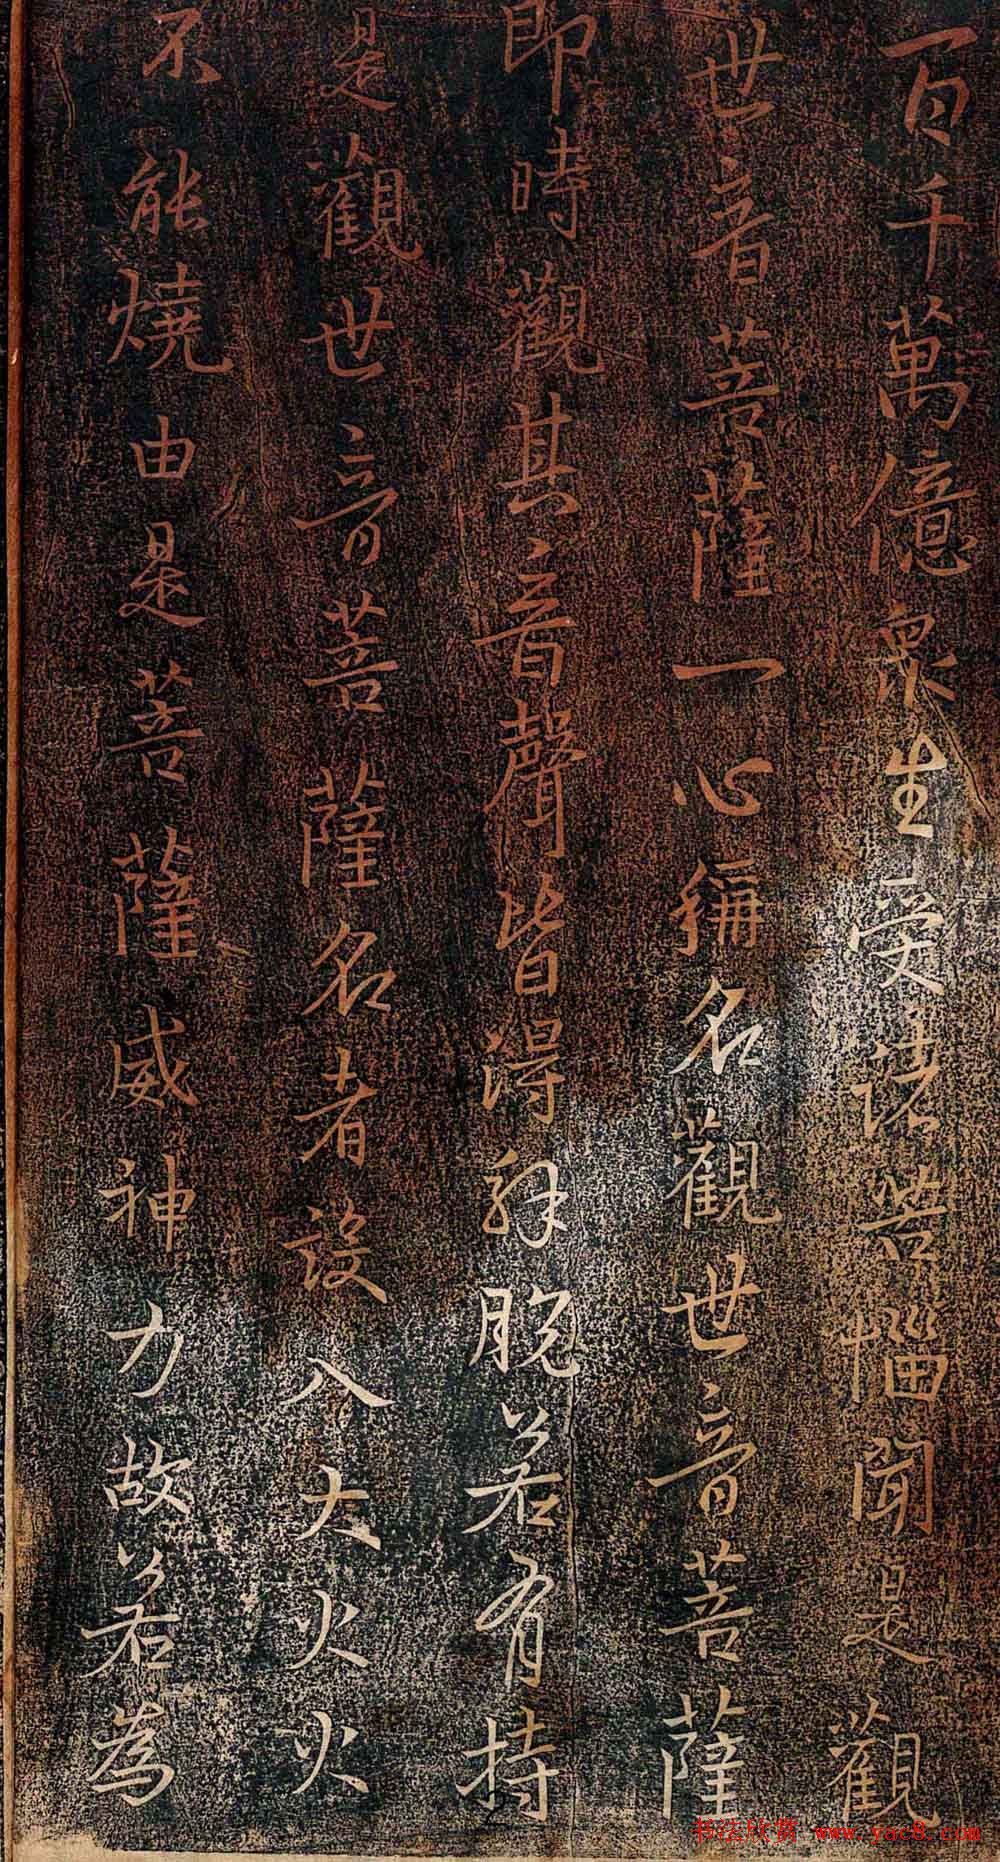 百千萬億衆生受諸苦惱聞是觀
世音菩薩一心稱名觀世音菩薩
即時觀其音聲皆得解脫若有持
是觀世音菩薩名者設入大火火
不能燒由是菩薩威神力故若為
书法欣赏 www.yac8.com